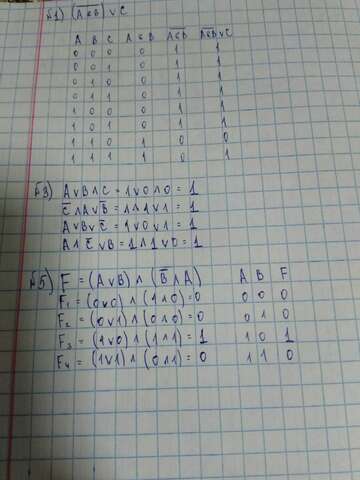 №1) (A̅&̅B̅) ∨ C
A B C A&B A̅&̅B̅ A̅&̅B̅∨C
0 0 0 0 1 1
0 0 1 0 1 1
0 1 0 0 1 1
0 1 1 0 1 1
1 0 0 0 1 1
1 0 1 0 1 1
1 1 0 1 0 0
1 1 1 1 0 1
№3) A∨B∧C = 1∨0∧0 = 1
C̅∧A∨B̅ = 1∧1∨1 = 1
A∨B∨C̅ = 1∨0∨1 = 1
A∧C̅∨B = 1∧1∨0 = 1
№5) F = (A∨B) ∧ (B̅∧A) A B F
F₁ = (0∨0) ∧ (1∧0) = 0 0 0 0
F₂ = (0∨1) ∧ (0∧0) = 0 0 1 0
F₃ = (1∨0) ∧ (1∧1) = 1 1 0 1
F₄ = (1∨1) ∧ (0∧1) = 0 1 1 0